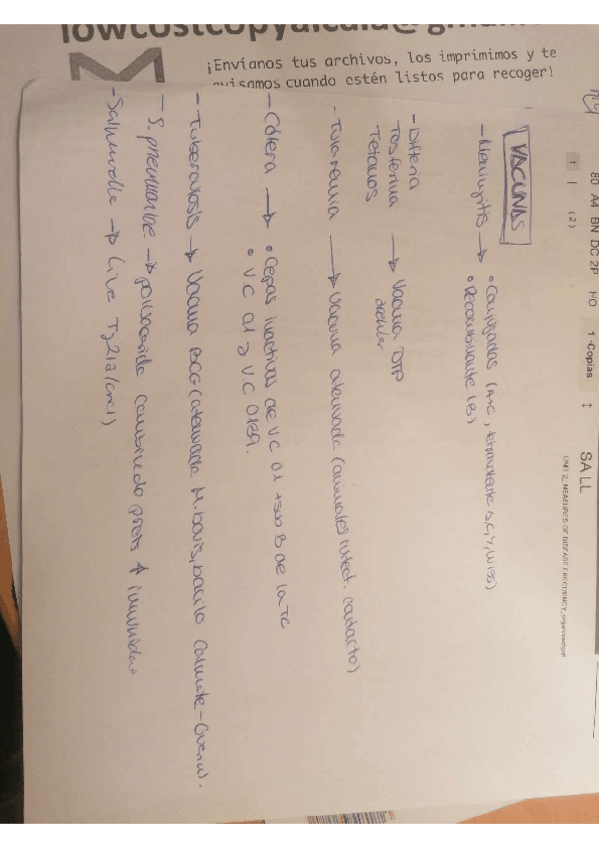 lowcostcopyalcala@gmai
¡Envíanos tus archivos, los imprimimos y te
avisamos cuando estén listos para recoger!
80 A4 BN DC 2P HO 1-Copias
1 | (2)
SALL
UNIT 2_MEASURES OF DISEASE FRECUENCY_organized.pdf
VACUNAS
- Meningitis → • Conjugadas (A+C, tetravalente A,C,Y,W135)
• Recombinante (B)
- Difteria
Tosferina → Vacuna DTP
Tétanos acelular
- Tularemia → Vacuna atenuada (animales infect. contacto)
- Cólera → • Cepas inactivas de V.C 01 + sub B de la TC
• V.C 01 y V.C 0139.
- Tuberculosis → Vacuna BCG (atenuada M. bovis, bacilo Calmette-Guerin).
- S. pneumoniae → polisacárido cambiando prots ↑ inmunidad
- Salmonella → Live Ty21a (oral)